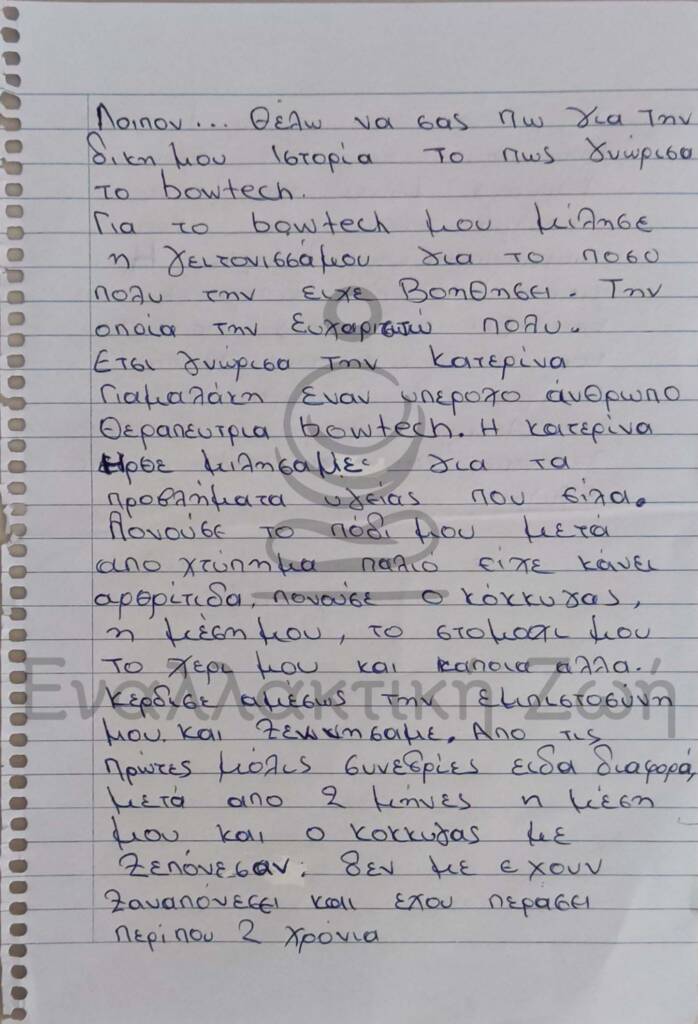 Λοιπον... Θέλω να σας πω για την
δικη μου Ιστορία το πως γνώρισα
το bowtech.
Για το bowtech μου μίλησε
η γειτονισσάμου για το ποσο
πολυ την ειχε Βοηθησει. Την
οποία την Ευχαριστώ πολυ.
Ετσι γνώρισα την Κατερίνα
Γιαμαλάκη έναν υπεροχο άνθρωπο
Θεραπευτρια bowtech. Η κατερίνα
Ηρθε μιλησαμε για τα
προβλήματα υγείας που είχα.
Πονούσε το πόδι μου μετά
απο χτύπημα παλιο είχε κάνει
αρθρίτιδα, πονούσε ο κόκκυγας,
η μέση μου, το στομαχι μου
το χερι μου και καποια αλλα.
Εναλλακτική Ζωή
κερδισε αμεσως την εμπιστοσύνη
μου και ξεκινησαμε. Απο τις
πρώτες μόλις συνεδρίες ειδα διαφορά,
μετά απο 2 μήνες η μέση
μου και ο κοκκυγας με
ξεπόνεσαν. δεν με εχουν
ξαναπόνεσει και εχου περάσει
περίπου 2 χρόνια